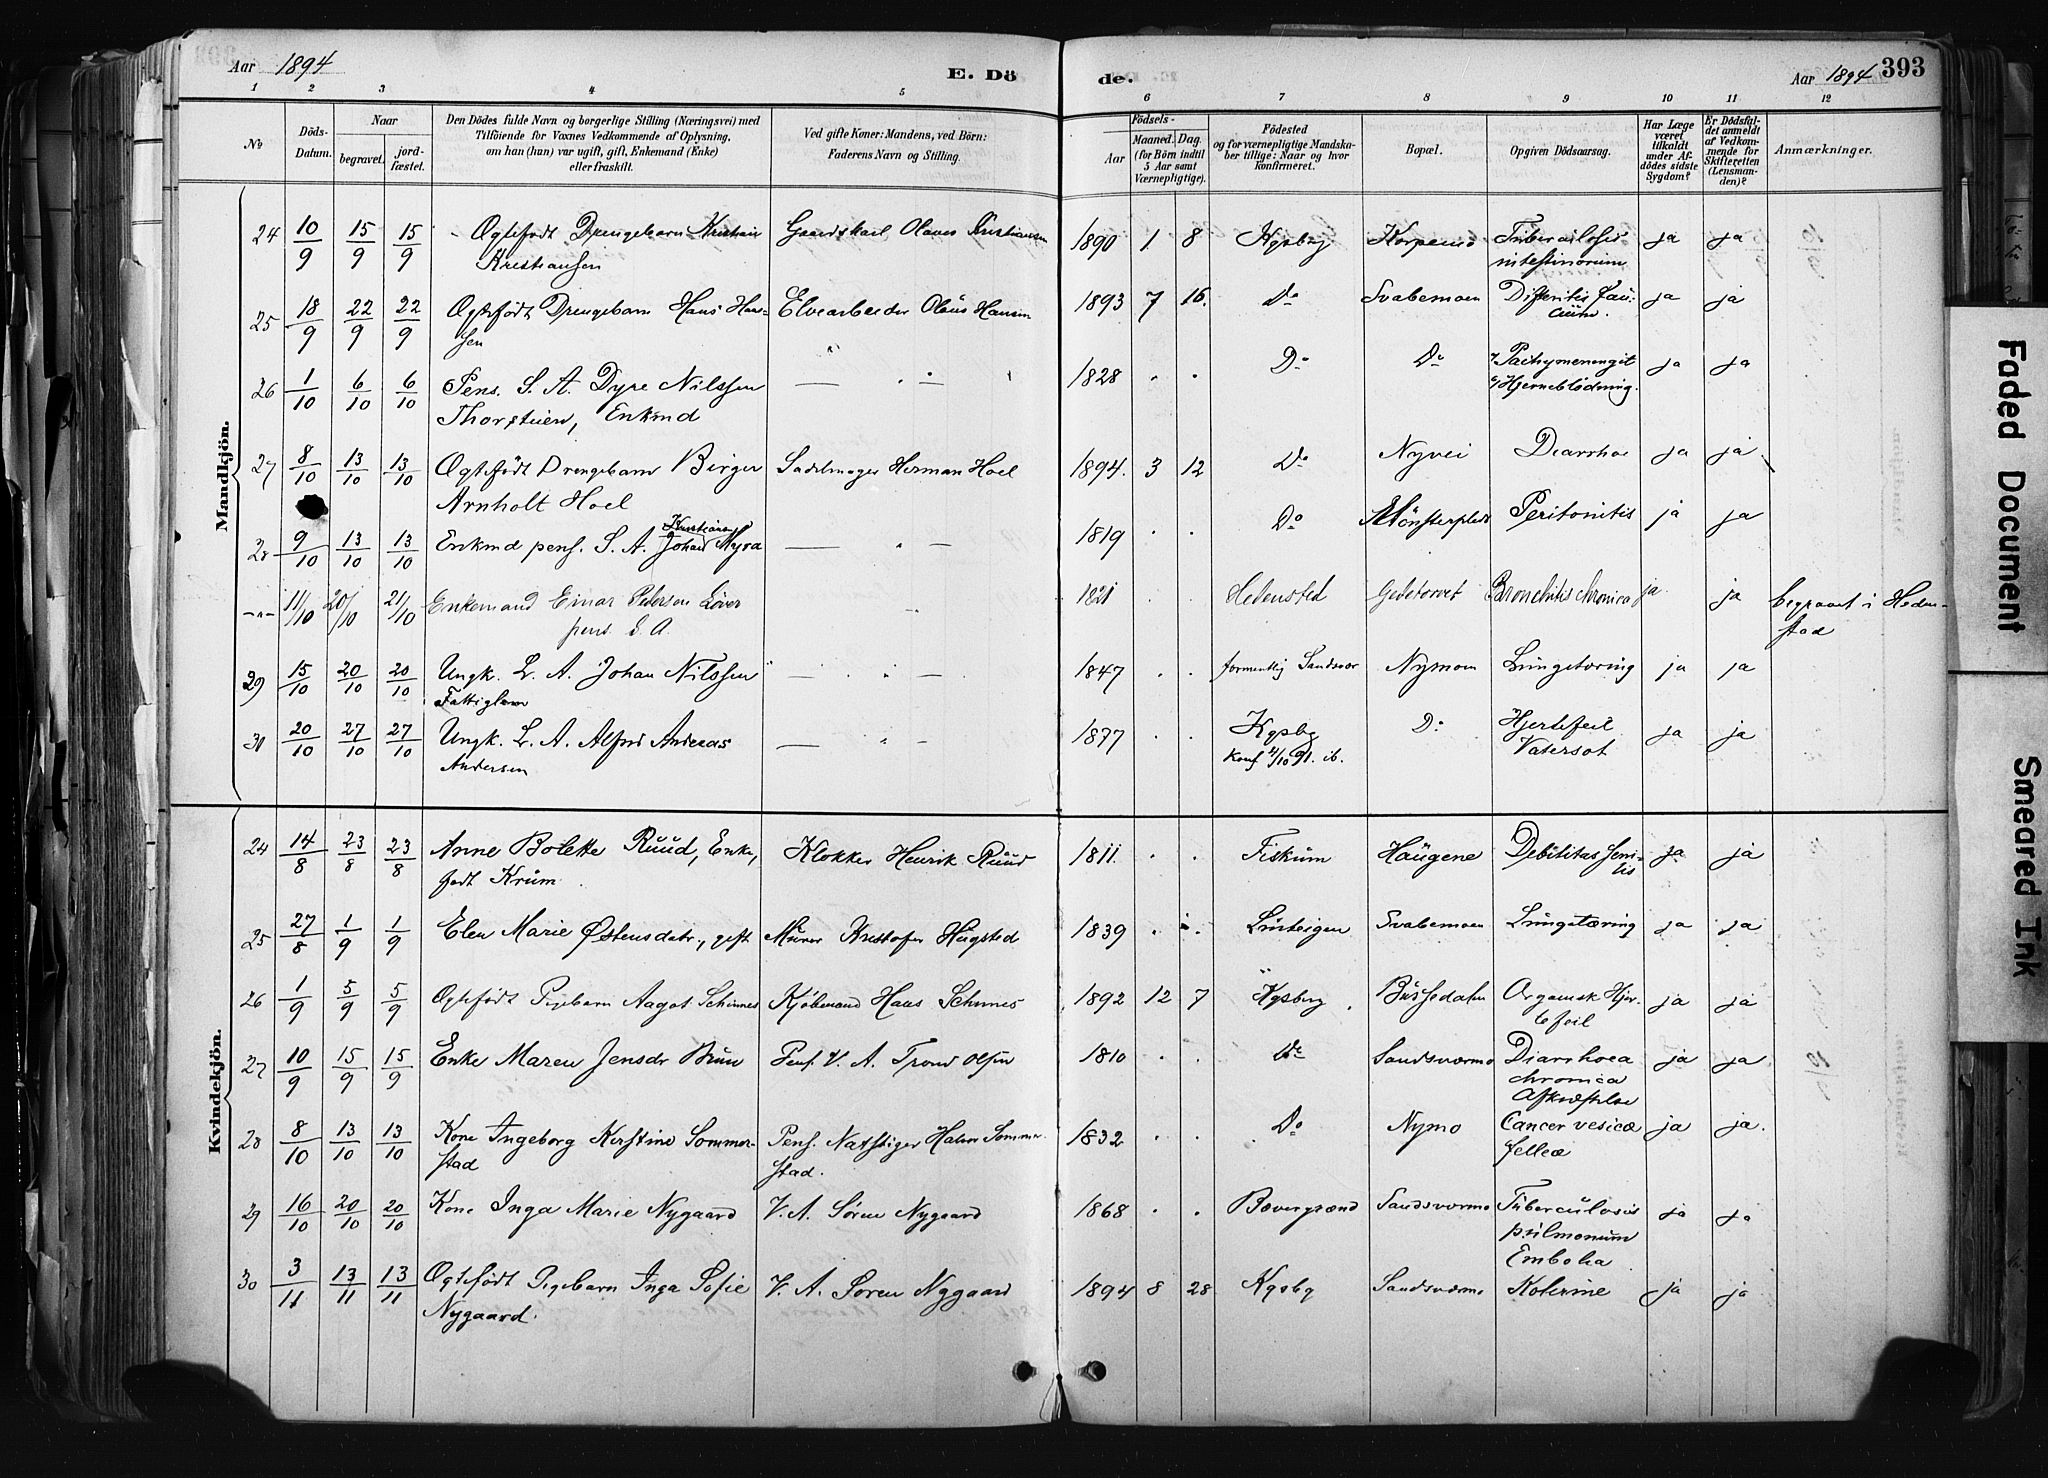 Aar 1894
E. Dö
de.
Aar 1894 393
1 2 3 4 5 6 7 8 9 10 11 12
No
Döds-
Datum.
Naar
begravet.
jord-
fæstet.
Den Dödes fulde Navn og borgerlige Stilling (Næringsvei) med
Tilföiende for Voxnes Vedkommende af Oplysning,
om han (hun) var ugift, gift, Enkemand (Enke)
eller fraskilt.
Ved gifte Koner: Mandens, ved Börn:
Faderens Navn og Stilling.
Födsels-
Aar
Maaned. Dag.
(for Börn indtil
5 Aar samt
Værnepligtige).
Födested
og for værnepligtige Mandska-
ber tillige: Naar og hvor
konfirmeret.
Bopæl.
Opgiven Dödsaarsag.
Har Læge
været
tilkaldt
under Af-
dödes sidste
Sygdom?
Er Dödsfal-
det anmeldt
af Vedkom-
mende for
Skifteretten
(Lensman-
den)?
Anmærkninger.
Mandkjön.
24 10/9 15/9 15/9 Ogtefødt Drengebarn Kristian Gaardskarl Olaves Kristiansen 1890 1 8 Kgsbg Korpemo Tuberculosis ja ja
Kristiansen intestinorum
25 18/9 22/9 22/9 Ogtefødt Drengebarn Hans Han- Elvearbeider Olaus Hansen 1893 7 16. Do Svabemoen Difteritis fau- ja ja
sen cium.
26 1/10 6/10 6/10 Pens. S. A. Dyre Nilssen — " — 1828 . . Do Do Pachymeningit ja ja
Thorstuen, Enkmd Hjerneblödning.
27 8/10 13/10 13/10 Ogtefödt Drengebarn Birger Sadelmager Herman Hoel 1894. 3 12 Do Nyvei Diarrhoe ja ja
Arnholt Hoel
28 9/10 13/10 13/10 Enkmd pens. S. A. Johan Kristians Myra — " — 1819 . . Do Mönsterplads Peritonitis ja ja
-"- 11/10 20/10 21/10 Enkemand Einar Pedersen Löver " 1821 . . Hedensted Gedetorvet Bronchitis chronica ja ja begravet i Heden-
pens. S. A. stad
29 15/10 20/10 20/10 Ungk. L. A. Johan Nilssen — " — 1847 . . formentlig Sandsvær Nymoen Lungetæring ja ja
Fattiglem
30 20/10 27/10 27/10 Ungk. L. A. Alfred Andreas — " — 1877 . . Kgsbg Do Hjertefeil ja ja
Andersen konf 4/10 91. ib. Vatersot
Kvindekjön.
24 14/8 23/8 23/8 Anne Bolette Ruud, Enke, Klokker Henrik Ruud 1811. . . Fiskum Haugene Debilitas seni- ja ja
født Krum. lis
25 27/8 1/9 1/9 Elen Marie Østensdatr, gift Murer Kristofer Hugsted 1839 . . Lurteigen Svabemoen Lungetæring ja ja
26 1/9 5/9 5/9 Ogtefödt Pigebarn Aagot Schinnes Kjöbmand Hans Schinnes 1892 12 7 Kgsberg Bussedalen Organisk Hjer- ja ja
tefeil
27 10/9 15/9 15/9 Enke Maren Jensdr Brun Pens. V. A. Trond Olsen 1810 . . Do Sandsværmo Diarrhoea ja ja
chronica
Afkræftelse
28 8/10 13/10 13/10 Kone Ingeborg Kirstine Sommer- Pens. Natstiger Halvor Sommer- 1832 . . Do Nymo Cancer vesicæ ja ja.
stad stad. felleæ
29 16/10 20/10 20/10 Kone Inga Marie Nygaard V. A. Sören Nygaard 1868 . . Bævergrænd Sandsværmo Tuberculosis ja ja
pulmonum
Embolia
30 3/11 13/11 13/11 Ogtefödt Pigebarn Inga Sofie V. A. Sören Nygaard 1894 8 28 Kgsbg Sandsværmo Kolerine ja ja
Nygaard.
Faded Document
Smeared Ink